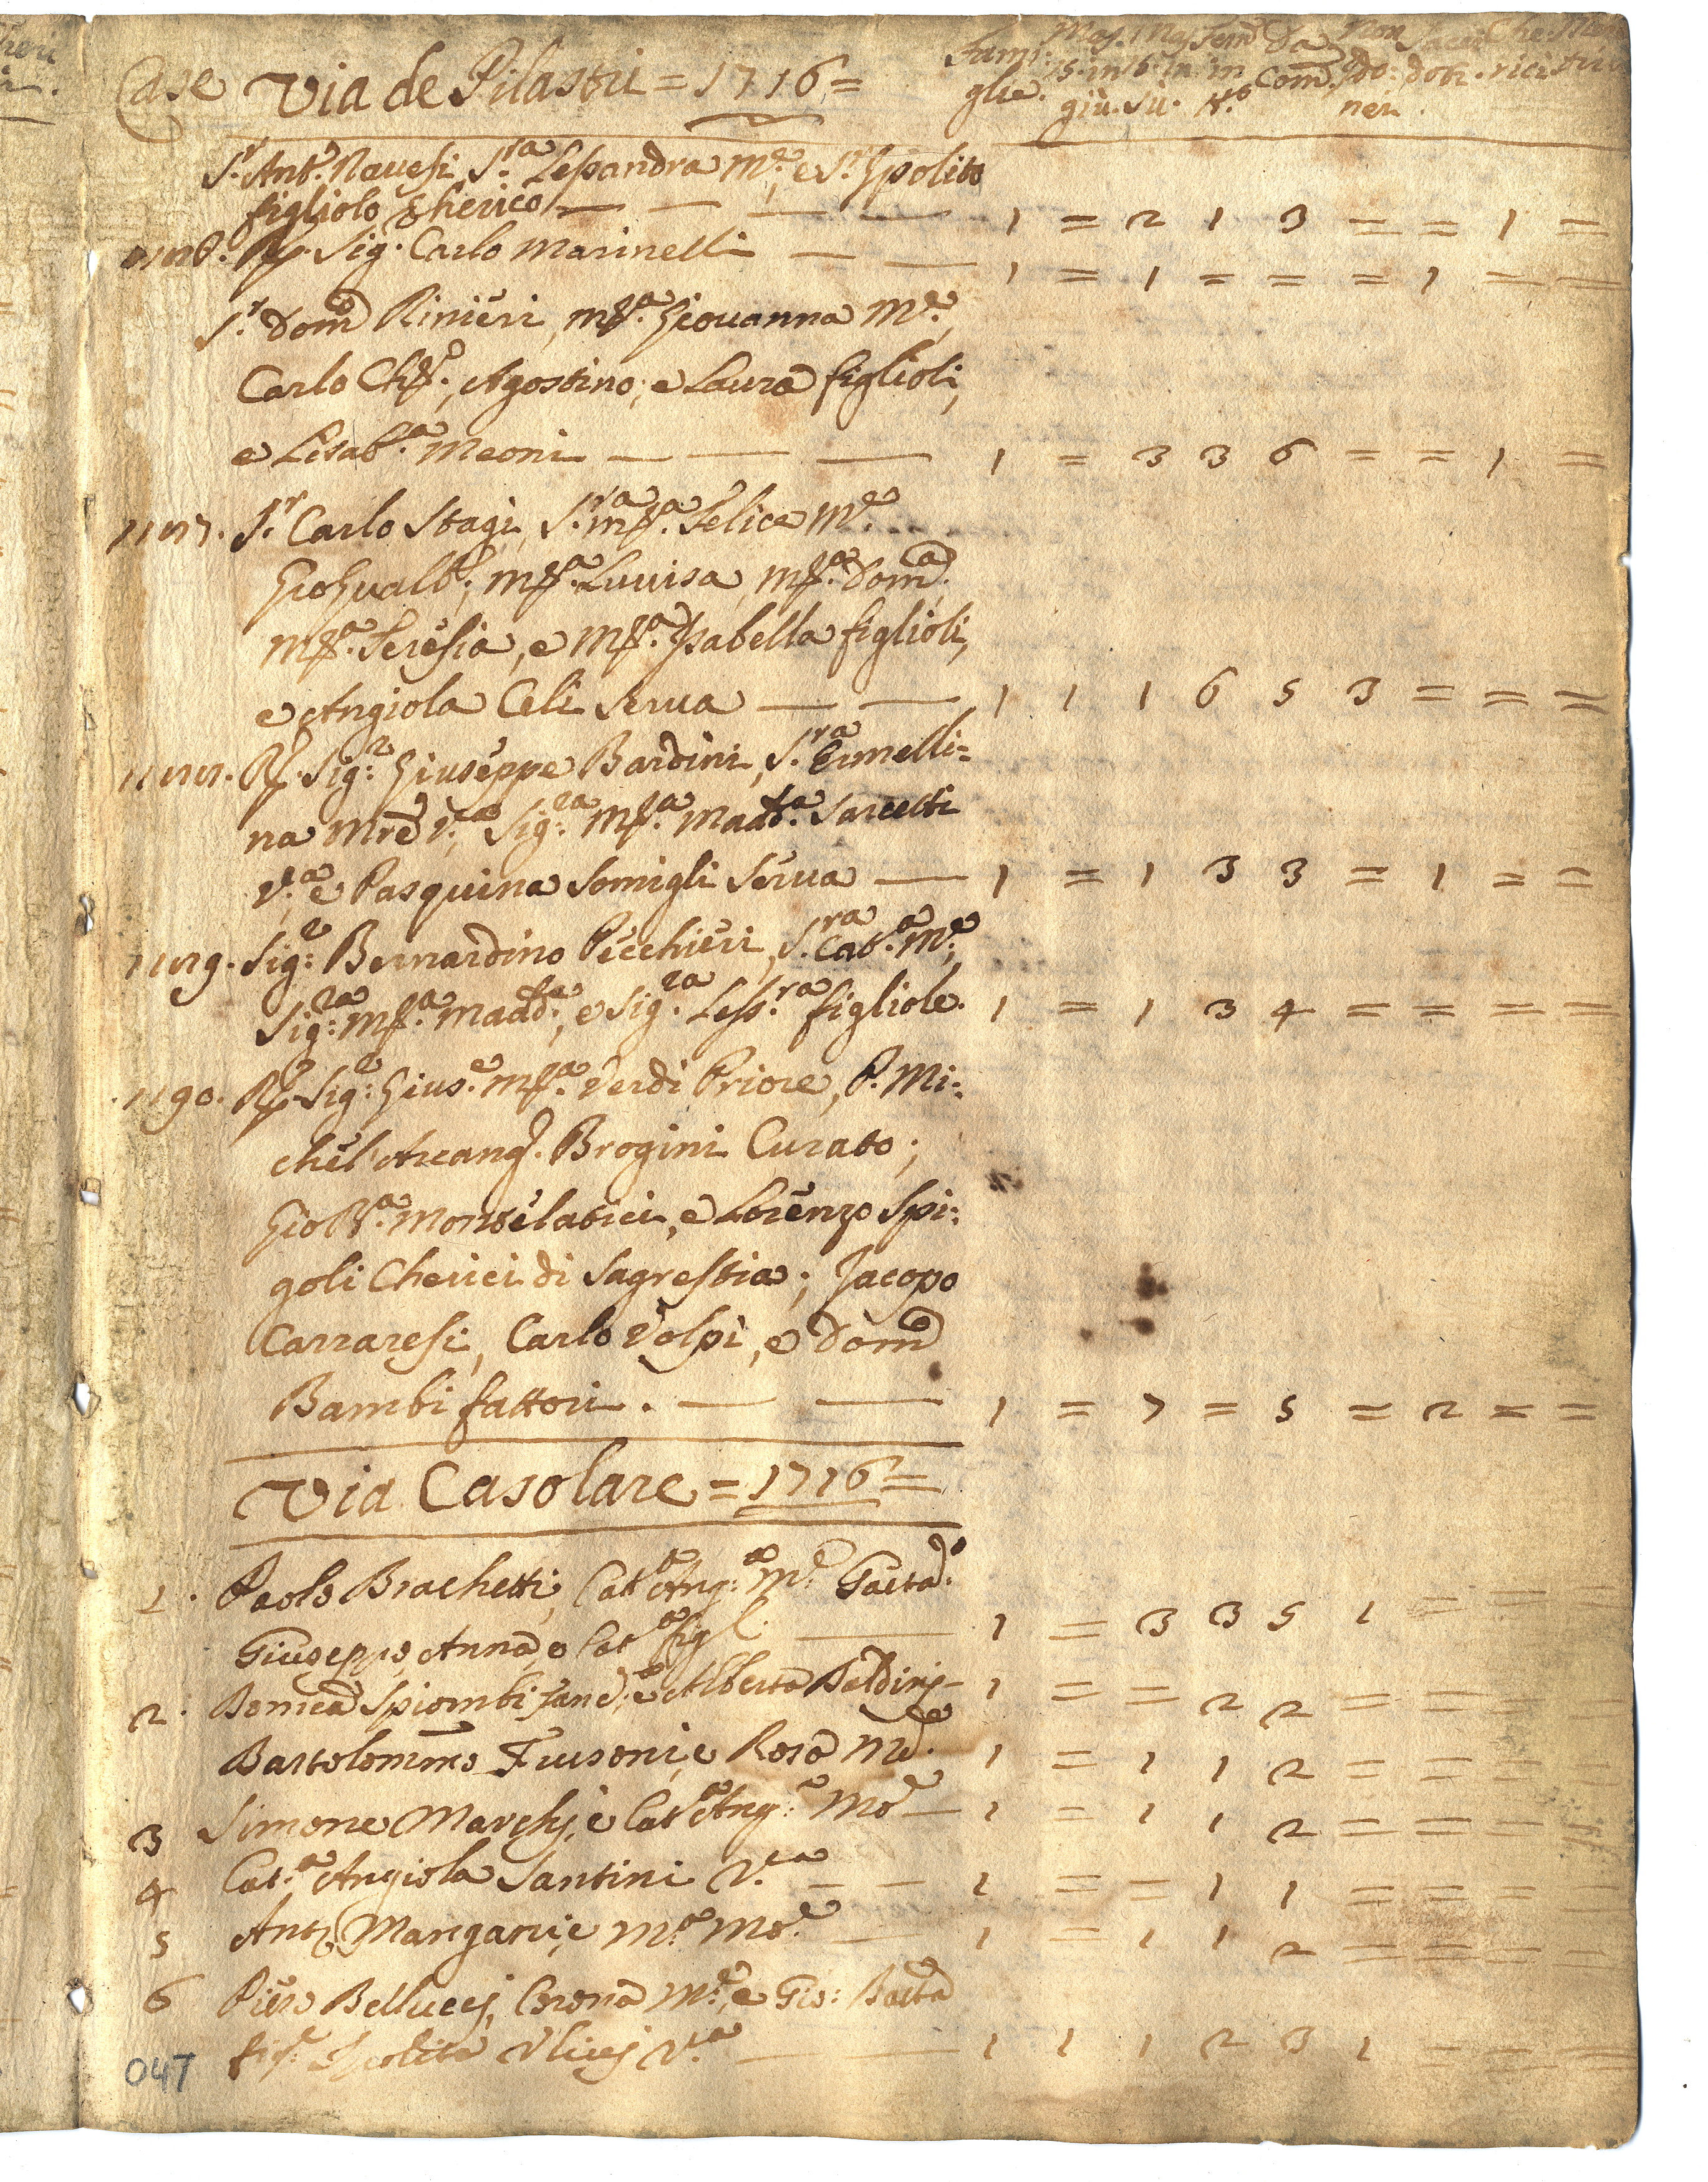 Case Via de Pilastri = 1716 =
Fami: Mas. Mas. Fem. Da Non Sacer Che.
glie. 15. in 16. in in Com. ado: doti. rici
giù. sù. N.º neri.
S.r Ant.º Navesi, S.ra Lessandra M.e, e S.r Ipolito
figliolo Cherico — — — — 1 = 2 1 3 = = 1 =
R. Sig. Carlo Marinelli — — 1 = 1 = = = 1 = =
S.r Dom.co Rinieri, M.a Giovanna M.e,
Carlo Ch.o, Agostino, e Laura figlioli,
e Lisab.a Meoni — — — 1 = 3 3 6 = = 1 =
S.r Carlo Stagi, S.ra M.a Felice M.e
GioGualb.o, M.a Luvisa, M.a Dom.ca
M.a Teresia, e M.a Isabella figlioli,
e Angiola Celi Serva — — 1 1 1 6 5 3 = = =
R. Sig.r Giuseppe Bardini, S.ra Ermelli=
na Mre V.a, Sig.ra M.a Madd.a Sarcetti
V.a e Pasquina Somigli Serva — 1 = 1 3 3 = 1 = =
Sig.r Bernardino Pecchieri, S.ra Cat.a M.e,
Sig.ra M.a Madd.a, e Sig.ra Less.ra figliole. 1 = 1 3 4 = = = =
1190. R. Sig.r Gius.e M.a Verdi Priore, P. Mi=
chel' Arcang.o Brogini Curato;
Gio B.a Monselatici, e Lorenzo Spi=
goli Cherici di Sagrestia; Jacopo
Carraresi, Carlo Volpi, e Dom.co
Bambi fattori. — — 1 = 7 = 5 = 2 = =
Via Casolare = 1716 =
1. Paolo Brachetti, Cat.a Ang.a M.e Gaeta.o
Giuseppe, Anna, e Cat.a figl. — 1 = 3 3 5 1 = = =
2. Domca Spiombi fanc.a, e Alberta Baldinj — 1 = = 2 2 = = = =
Bartolommo Frusoni, e Rosa Me. 1 = 1 1 2 = = = =
3 Simone Marchj, e Cat.a Ang.a Moe — 1 = 1 1 2 = = = =
4 Cat.a Angiola Santini V.a — — 1 = = 1 1 = = = =
5 Anto Mangani, e M.a Moe. — 1 = 1 1 2 = = = =
6 Piero Bellucej, Corona M.e, e Gio: Batta
fig.o Ipolita Ulivej V.a — — 1 1 1 2 3 1 = = =
047